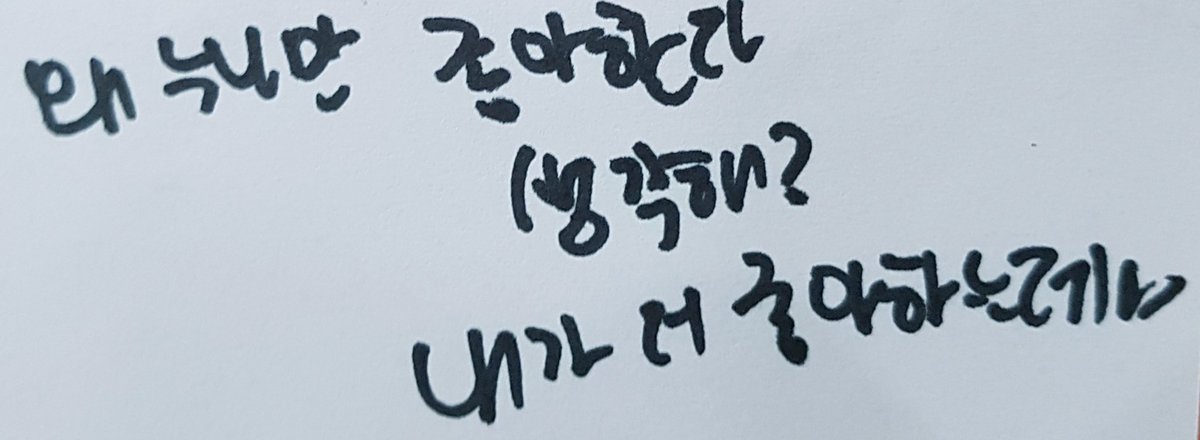 왜 누나만 좋아한다
생각해?
내가 더 좋아하는데